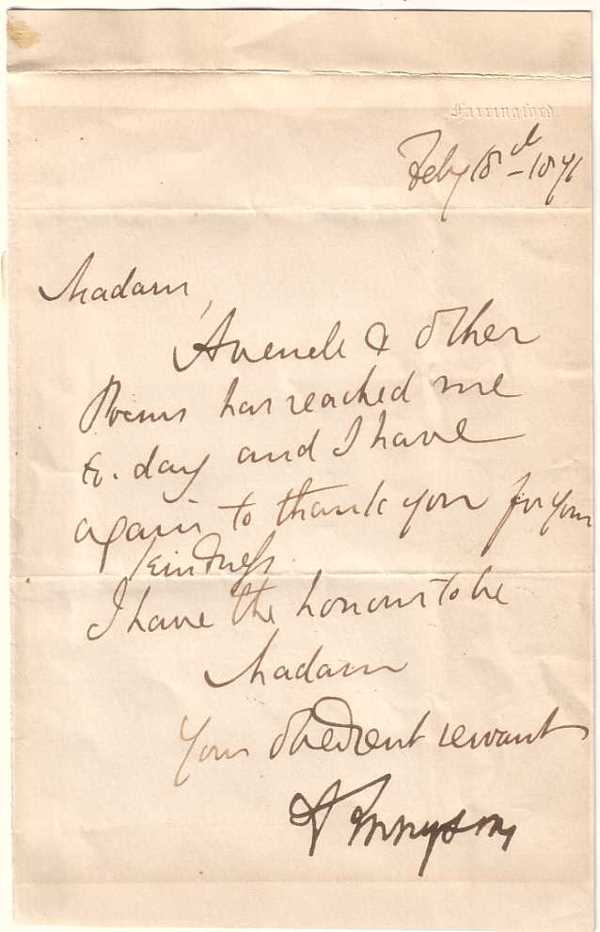 Farringford
Feby 18th - 1871
Madam,
& other
Poems has reached me
to-day and I have
again to thank you for your
kindness.
I have the honour to be
Madam
Your obedient servant
A Tennyson